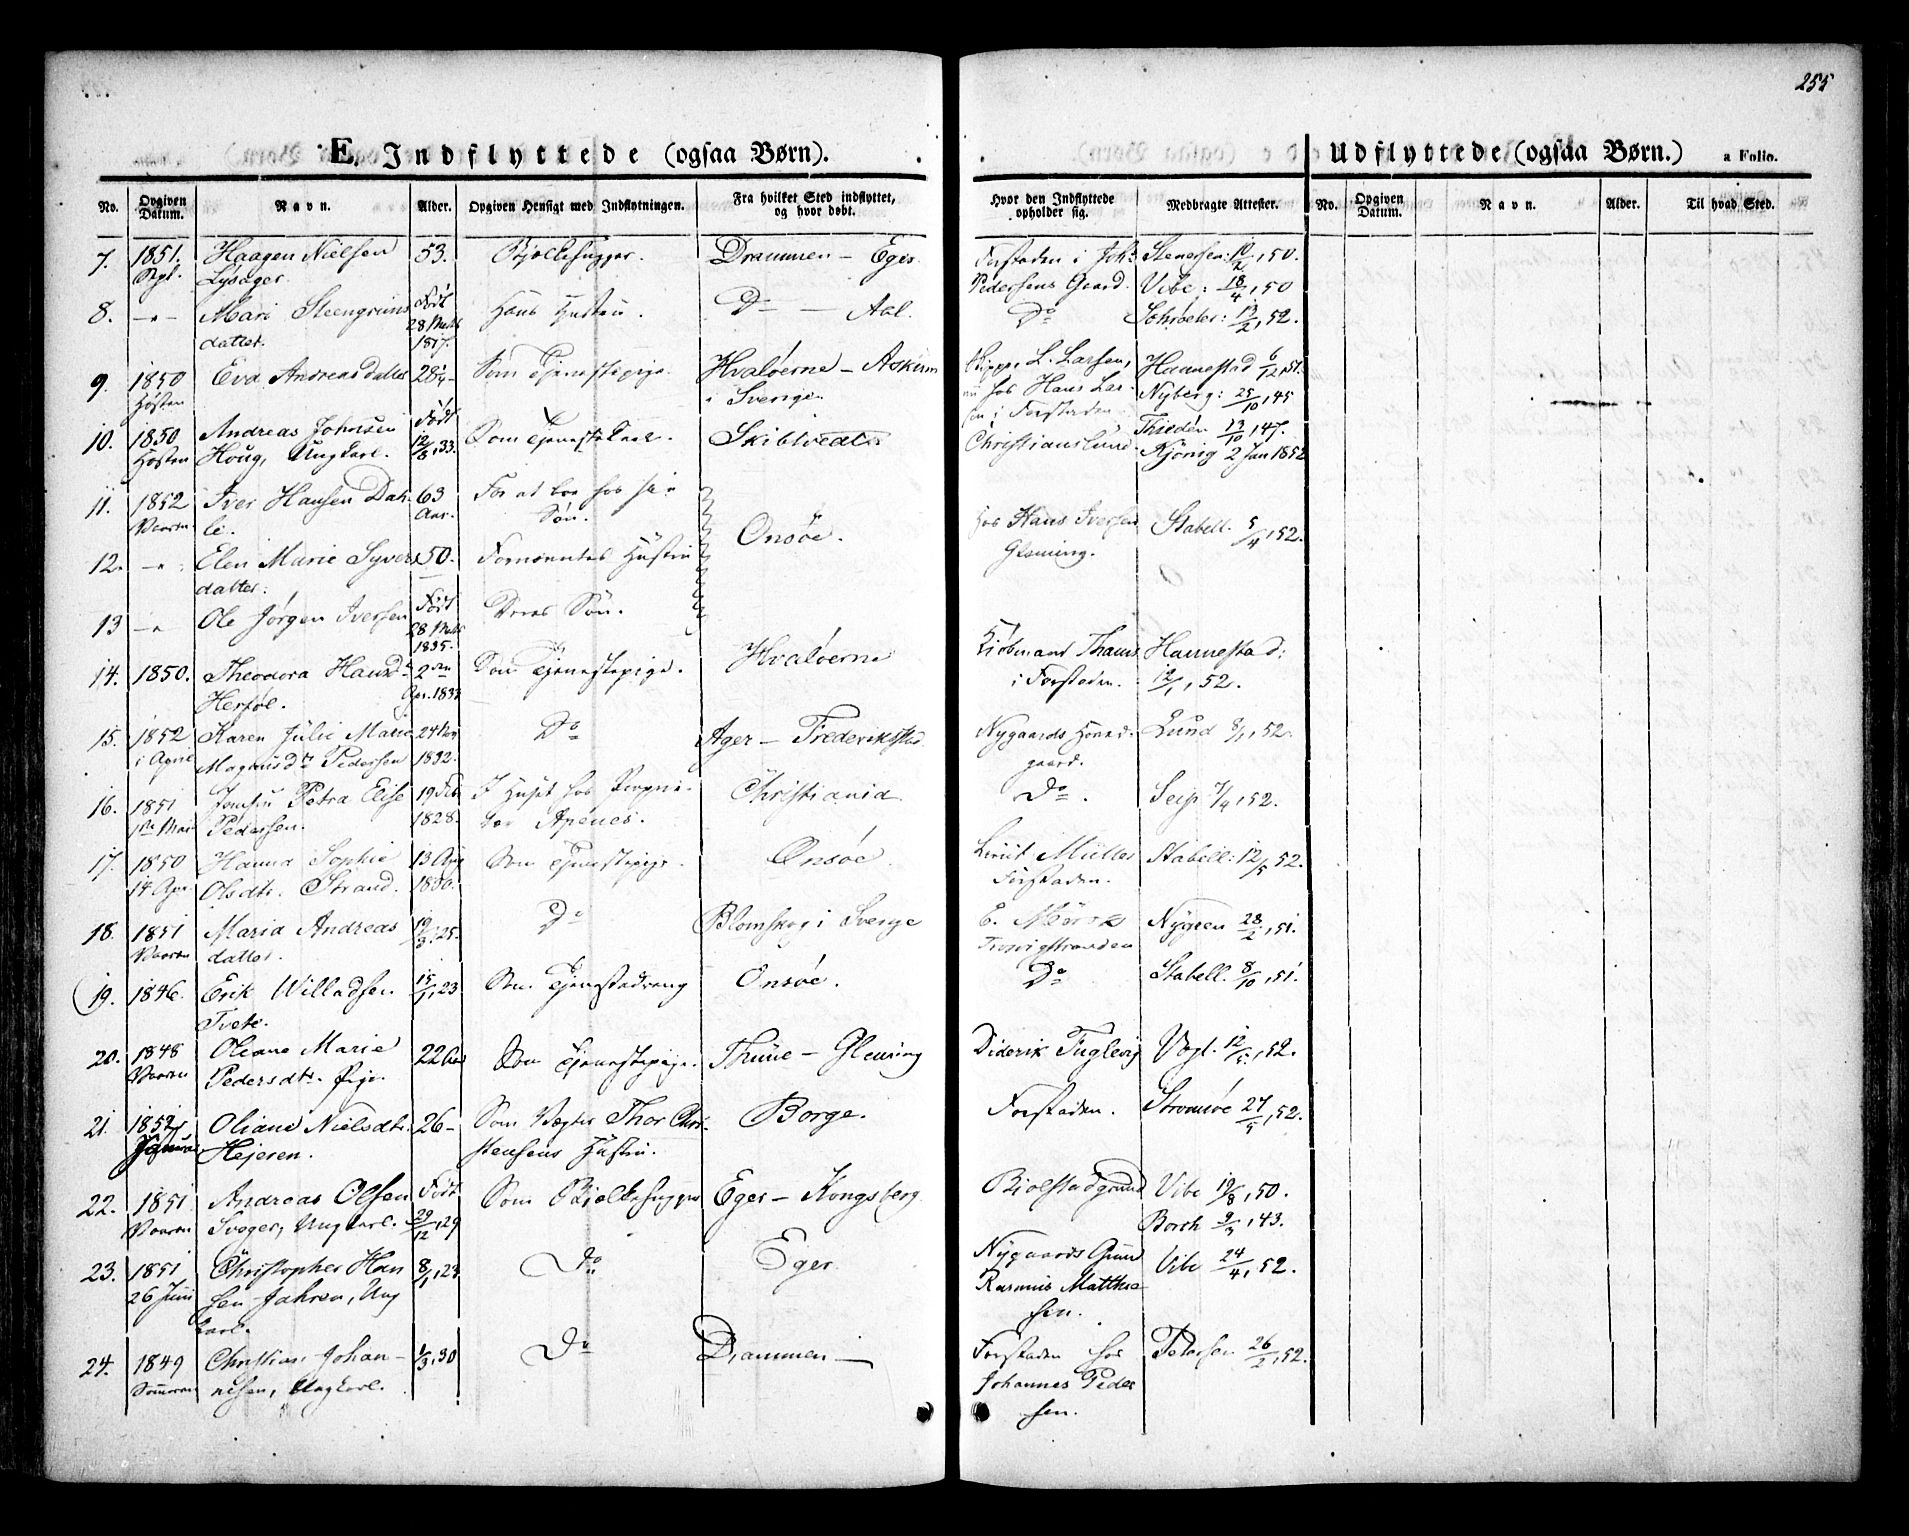 255
E. Indflyttede (ogsaa Børn).
Udflyttede (ogsaa Børn.) a Folio.
No. Opgiven Datum. Navn. Alder. Opgiven Hensigt med Indflytningen. Fra hvilket Sted indflyttet, og hvor døbt. Hvor den Indflyttede opholder sig. Medbragte Attester. No. Opgiven Datum. Navn. Alder. Til hvad Sted.
7. 1851. Haagen Nielsen 53. Bjelkehugger. Drammen – Eger. Forstaden i Joh: Stenersen: 10/2, 50.
Lysager. Pedersens Gaard. Vibe: 18/4, 50
8. –"– Mari Steengrims Født Hans Hustru. Do – Aal. Do Schrøeter: 13/2, 52.
datter. 28 1817.
9. 1850 Eva Andreasdatter 28 Som Tjenestepige. Hvaløerne – Askim L. Larsen, Hannestad 6/12 51.
Høsten i Sverige. nu hos Hans Lar- Nyberg: 25/10, 45
sen i Forstaden
10. 1850 Andreas Johnsen Født Som Tjenestekarl. Skibtvedt Thisdén 13/10, 47.
Høsten Houg, Ungkarl. 12/8, 33. Christianslund. Kjønig 2 Jan 1852
11. 1852 Iver Hansen Dah- 63 For at boe hos sin Hos Hans Iversen Stabell. 5/4, 52.
Vaaren le. Aar. Søn. Onsøe. Glemming.
12. –"– Elen Marie Syvers 50. Fornævntes Hustru
datter.
13 –" Ole Jørgen Iversen Født Deres Søn.
28 1835.
14. 1850. Theodora Hansd. 2den Som Tjenestepige. Hvaløerne Kjøbmand Thams Hannestad:
Herføl. Apr. 1833 i Forstaden. 12/1, 52.
15. 1852 Karen Julie Marie 24 Nov Do Ager – Frederikstad. Nygaards Hoved- Lund 8/1, 52.
Magnusdr Pedersen 1832. gaard.
16. 1851 Petra Elise 19 Feb I Huset hos Christiania Do. Seip 7/4, 52.
Pedersen. 1828. Apenes.
17. 1850 Hanna Sophie 13 Aug Som Tjenestepige. Onsøe Müller Stabell: 12/5 52.
14. Apr Olsdtr. Strand. 1830. Forstaden.
18. 1851 Maria Andreas 19/3, 25. Do Blomskog i Sverge E. Nygren 28/2, 51.
Vaaren datter.
19. 1846. Erik Willadsen 15/1, 23 Som Tjenestedreng Onsøe. Do Stabell. 8/10, 51.
Tvete.
20. 1848 Oliane Marie 22 Aar Som Tjenestepige. Thune – Glemming Diderik Fuglevig Vogt. 12/5, 52.
Vaaren Pedersdtr.
21. 1852 Oliane Nielsdtr. 26 – Som Vægter Thor Chri- Borge. Forstaden. Stromsøe 27/5, 52.
Januar Hejeren. stensens Hustru.
22. 1851 Andreas Olsen Født Som Bjelkehugger Eger – Kongsberg. Bjølstadgrund Vibe 19/8, 50.
Vaaren Sveger, Ungkarl. 29/12, 29 Borch 9/5, 43.
23. 1851 Christopher Han 8/1, 23 Do Eger. Nygaards Grund Vibe 24/4, 52.
26 Juni sen Jahren, Ung Rasmus Matthie-
karl. sen.
24. 1849 Christian Johan- 1/3, 30 Do Drammen – Forstaden hos Petersen 26/2, 52.
Sommeren nesen, Ungkarl. Johannes Peder
sen.